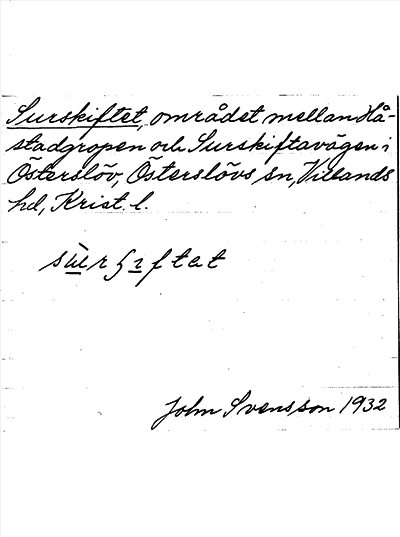 Surskiftet, området mellan Hå-
stadgropen och Surskiftavägen i
Österslöv, Österslövs sn, Villands
hd, Krist. l.
John Svensson 1932